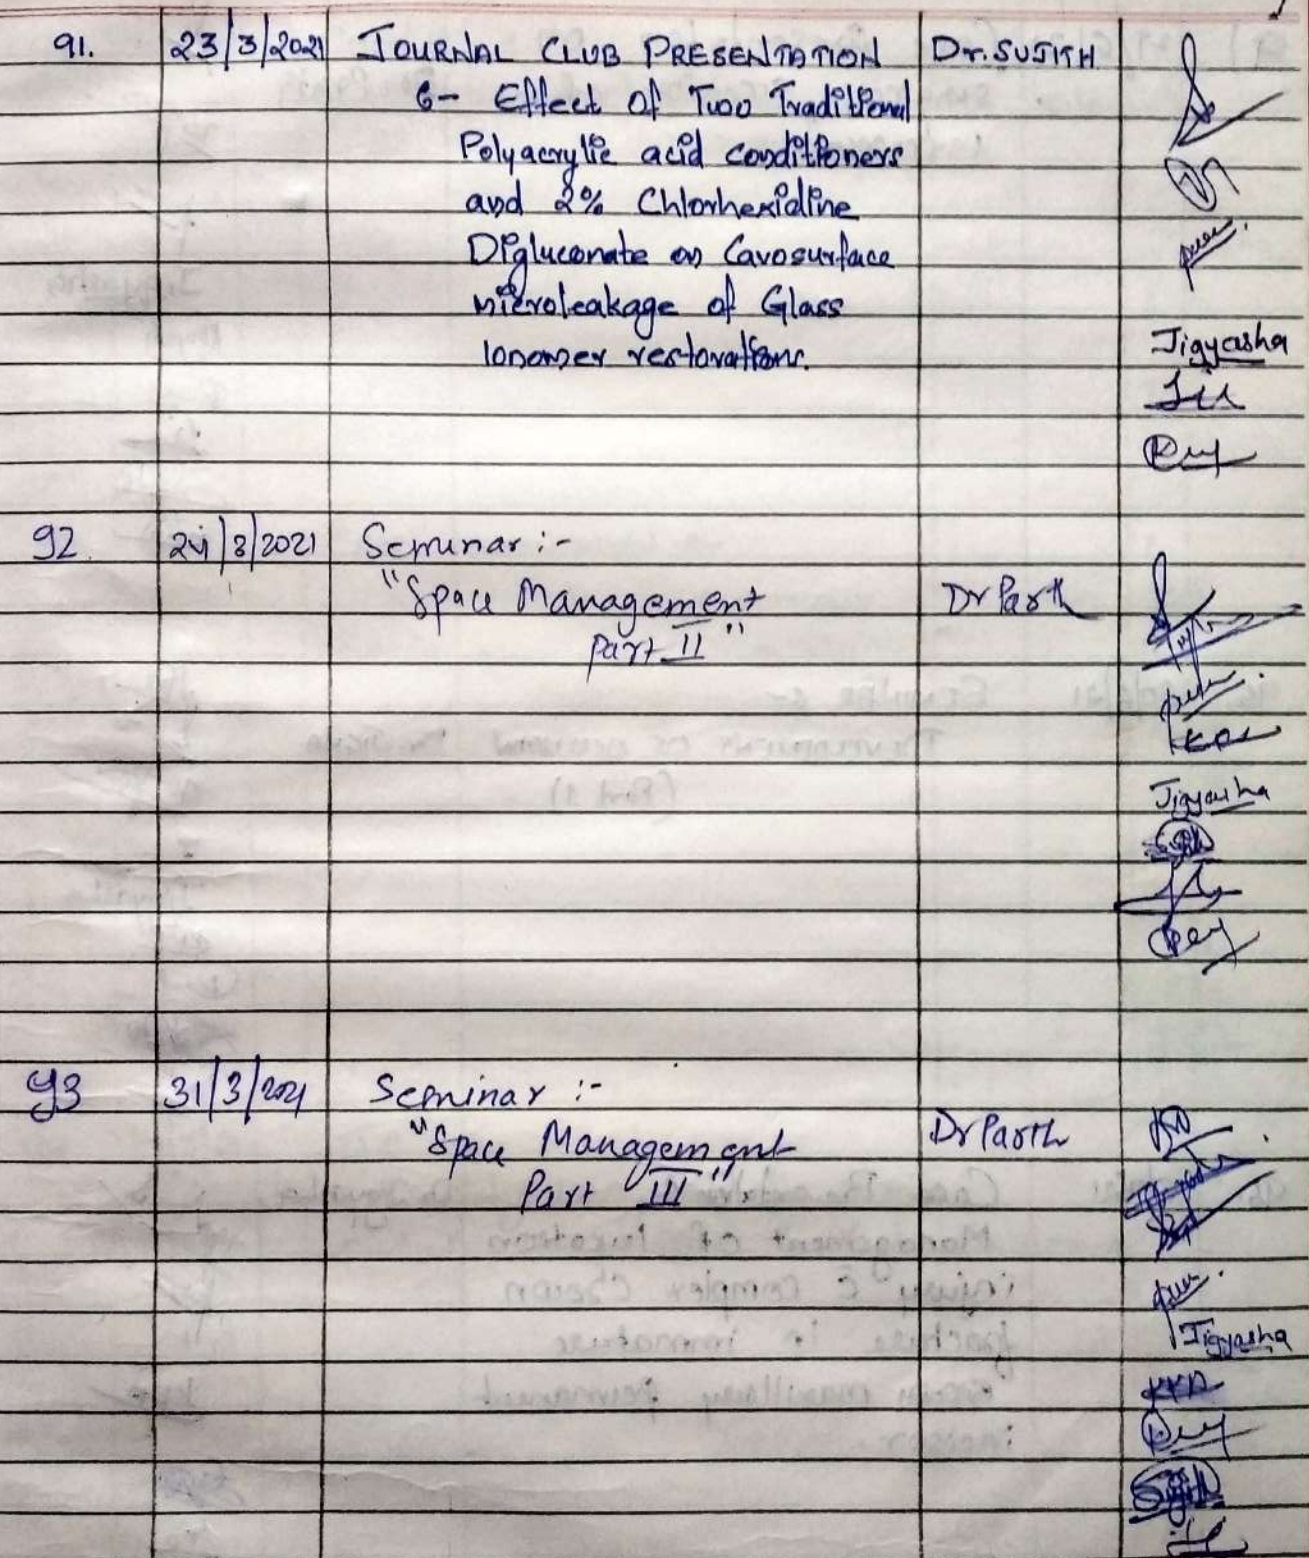 91. 23/3/2021 JOURNAL CLUB PRESENTATION Dr. SUJITH
6- Effect Of Two Traditional
Polyacrylic acid conditioners
and 2% Chlorhexidine
Digluconate on Cavosurface
microleakage of Glass
Ionomer restorations.
Jigyasha
92. 24/3/2021 Seminar :-
"Space Management Dr Parth
Part II"
Jigyasha
93 31/3/2021 Seminar :-
"Space Management Dr Parth
Part III"
Jigyasha